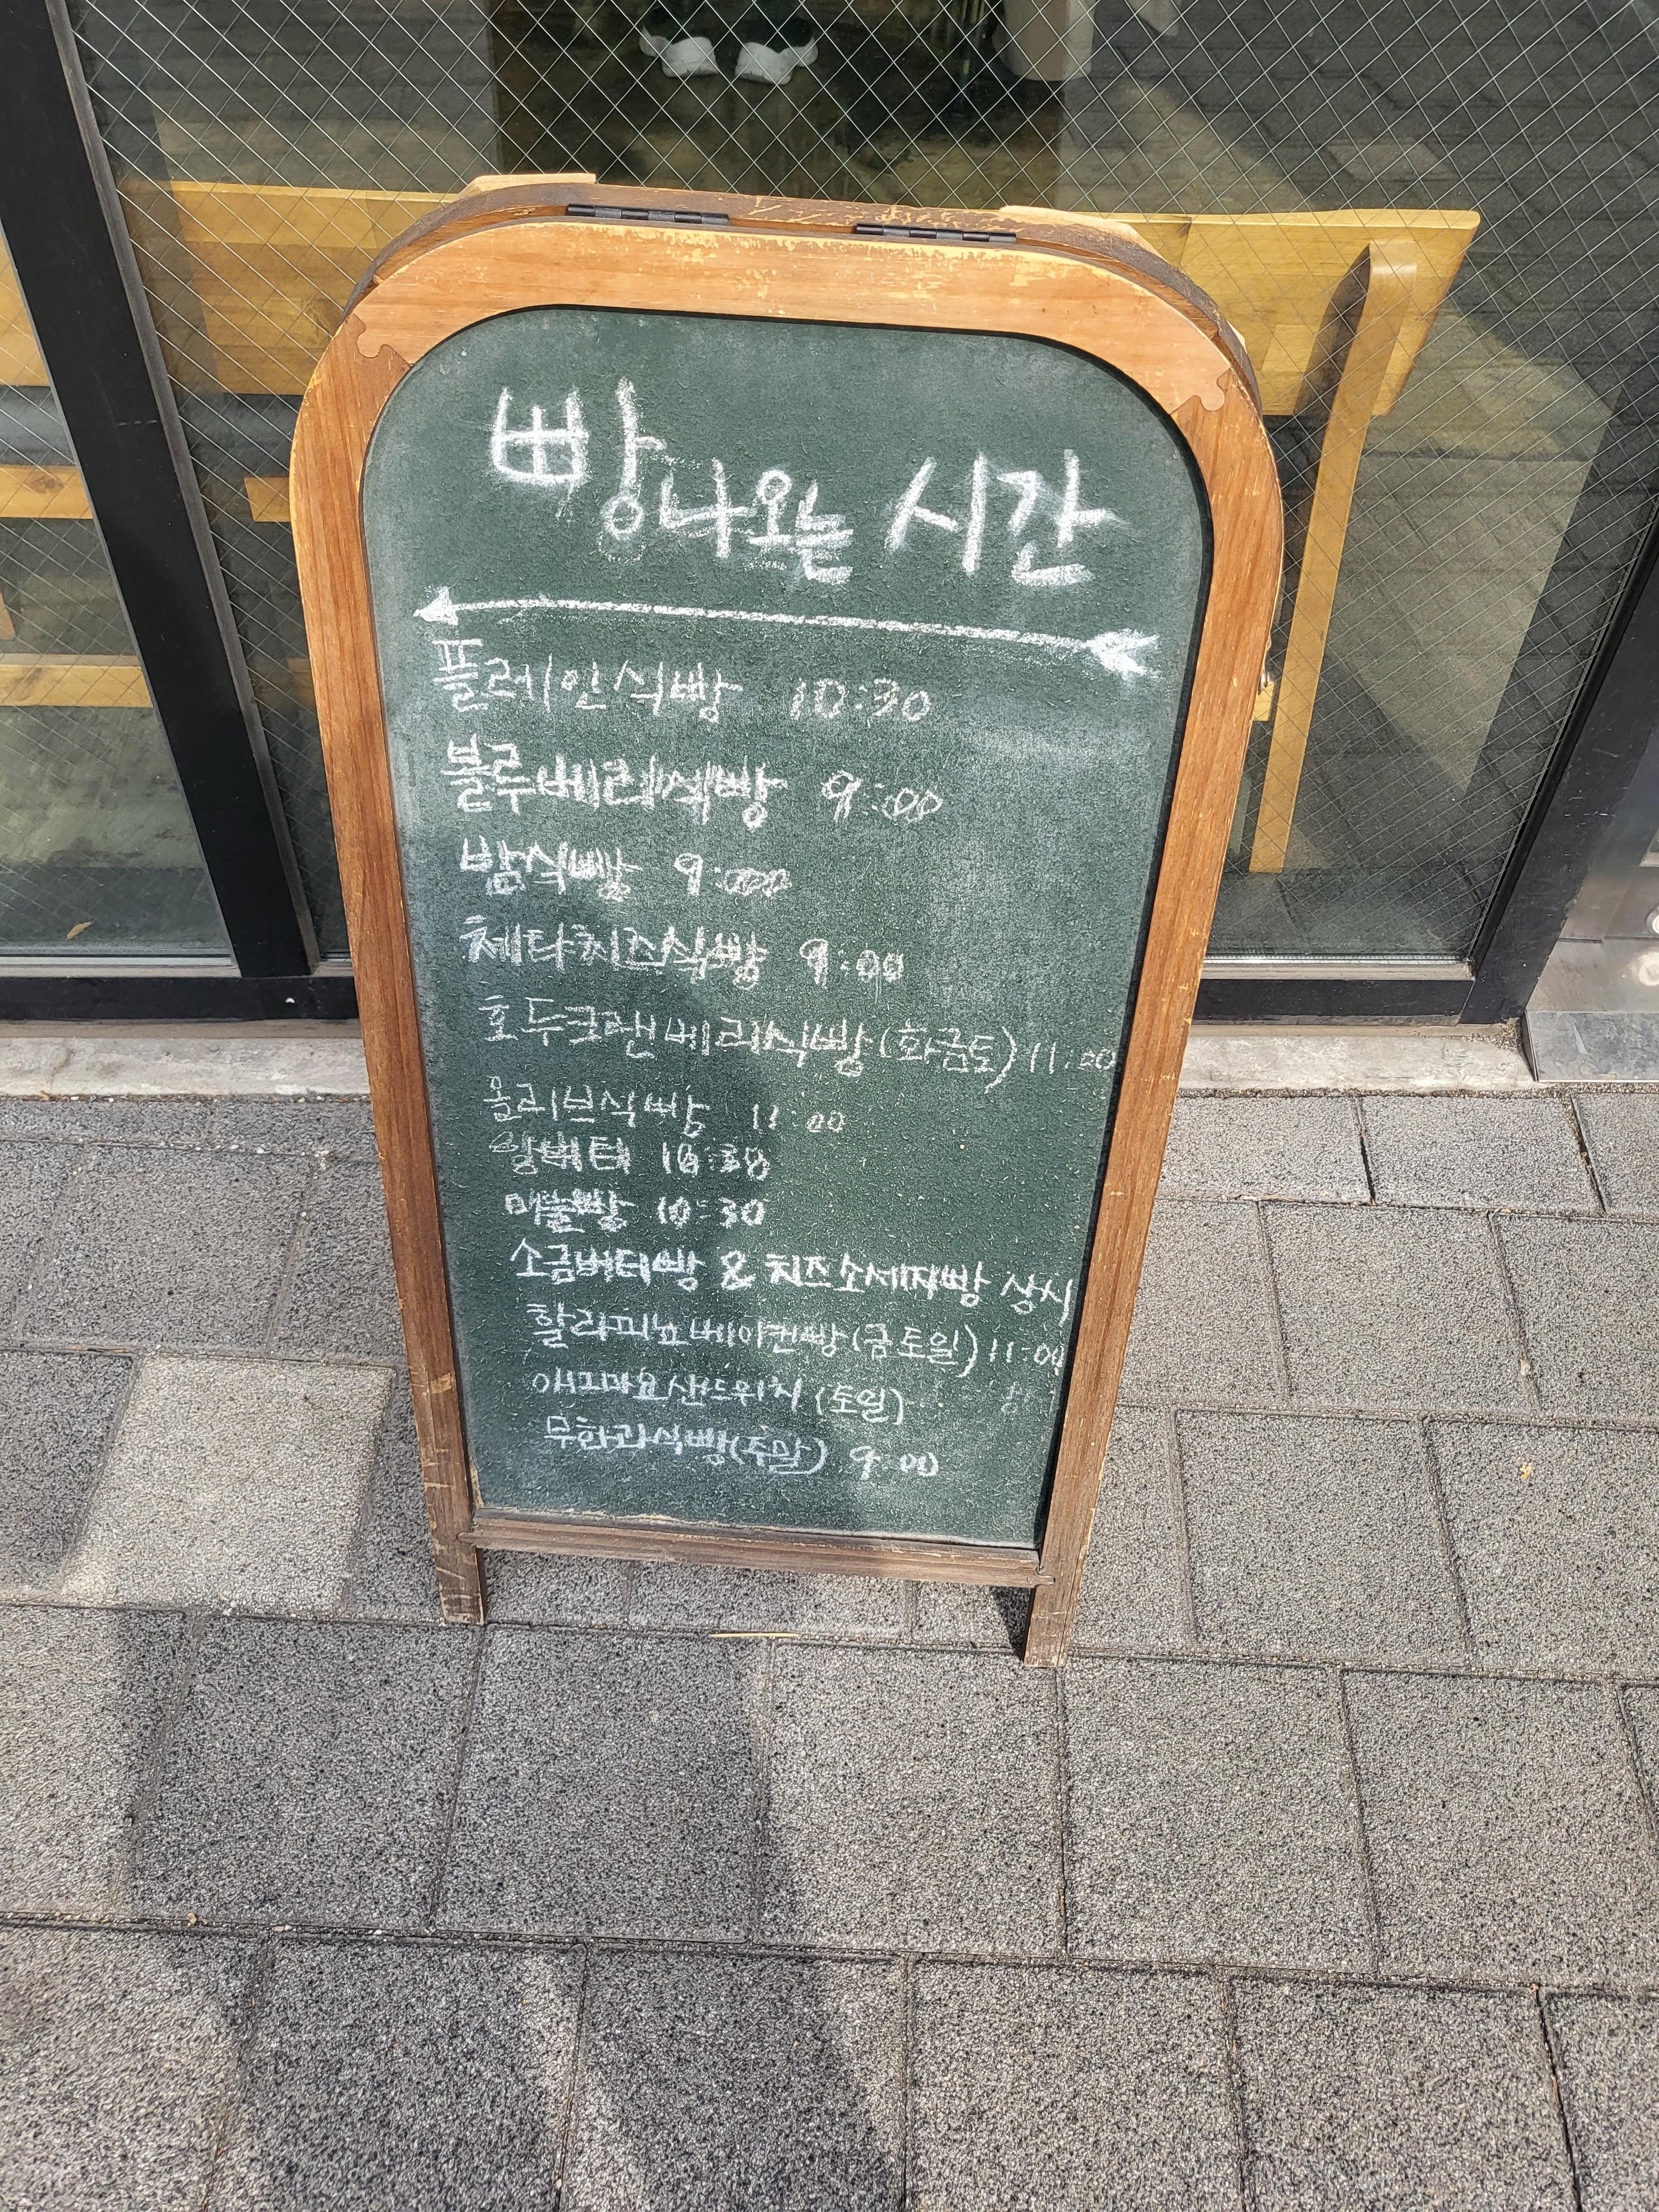 빵나오는 시간
플레인식빵 10:30
블루베리식빵 9:00
밤식빵 9:00
체다치즈식빵 9:00
호두크랜베리식빵(화금토) 11:00
올리브식빵 11:00
앙버터 10:30
마늘빵 10:30
소금버터빵 & 치즈소세지빵 상시
할라피뇨베이컨빵(금토일) 11:00
에그마요샌드위치 (토일)
무화과식빵(주말) 9:00